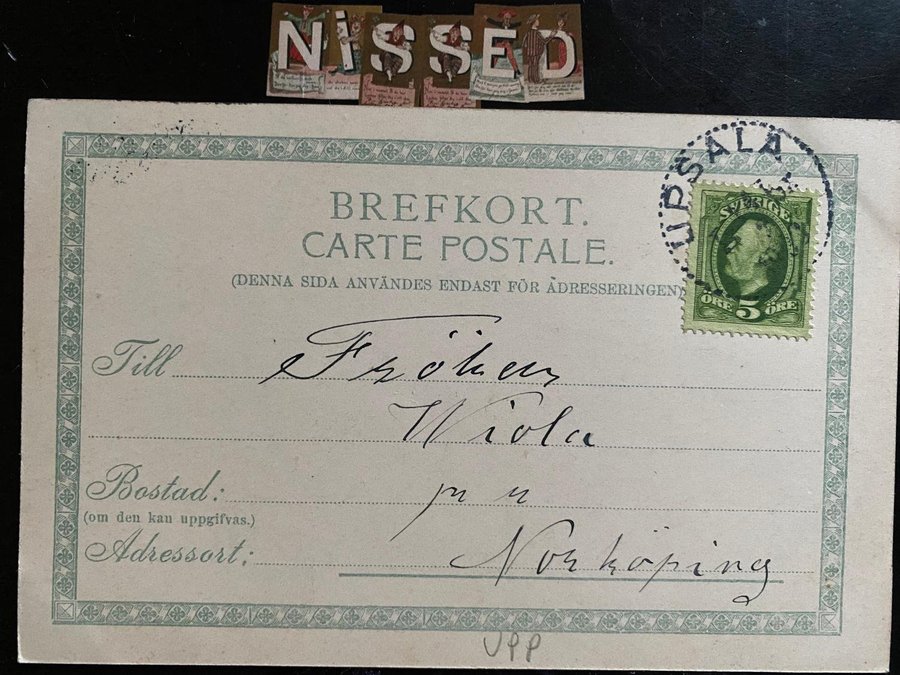 NiSSED
UPSALA
BREFKORT.
CARTE POSTALE.
(DENNA SIDA ANVÄNDES ENDAST FÖR ADRESSERINGEN)
SVERIGE
ÖRE 5 ÖRE
Till Fröken
Wiola
Bostad: p r
(om den kan uppgifvas.)
Adressort: Norköping
UPP